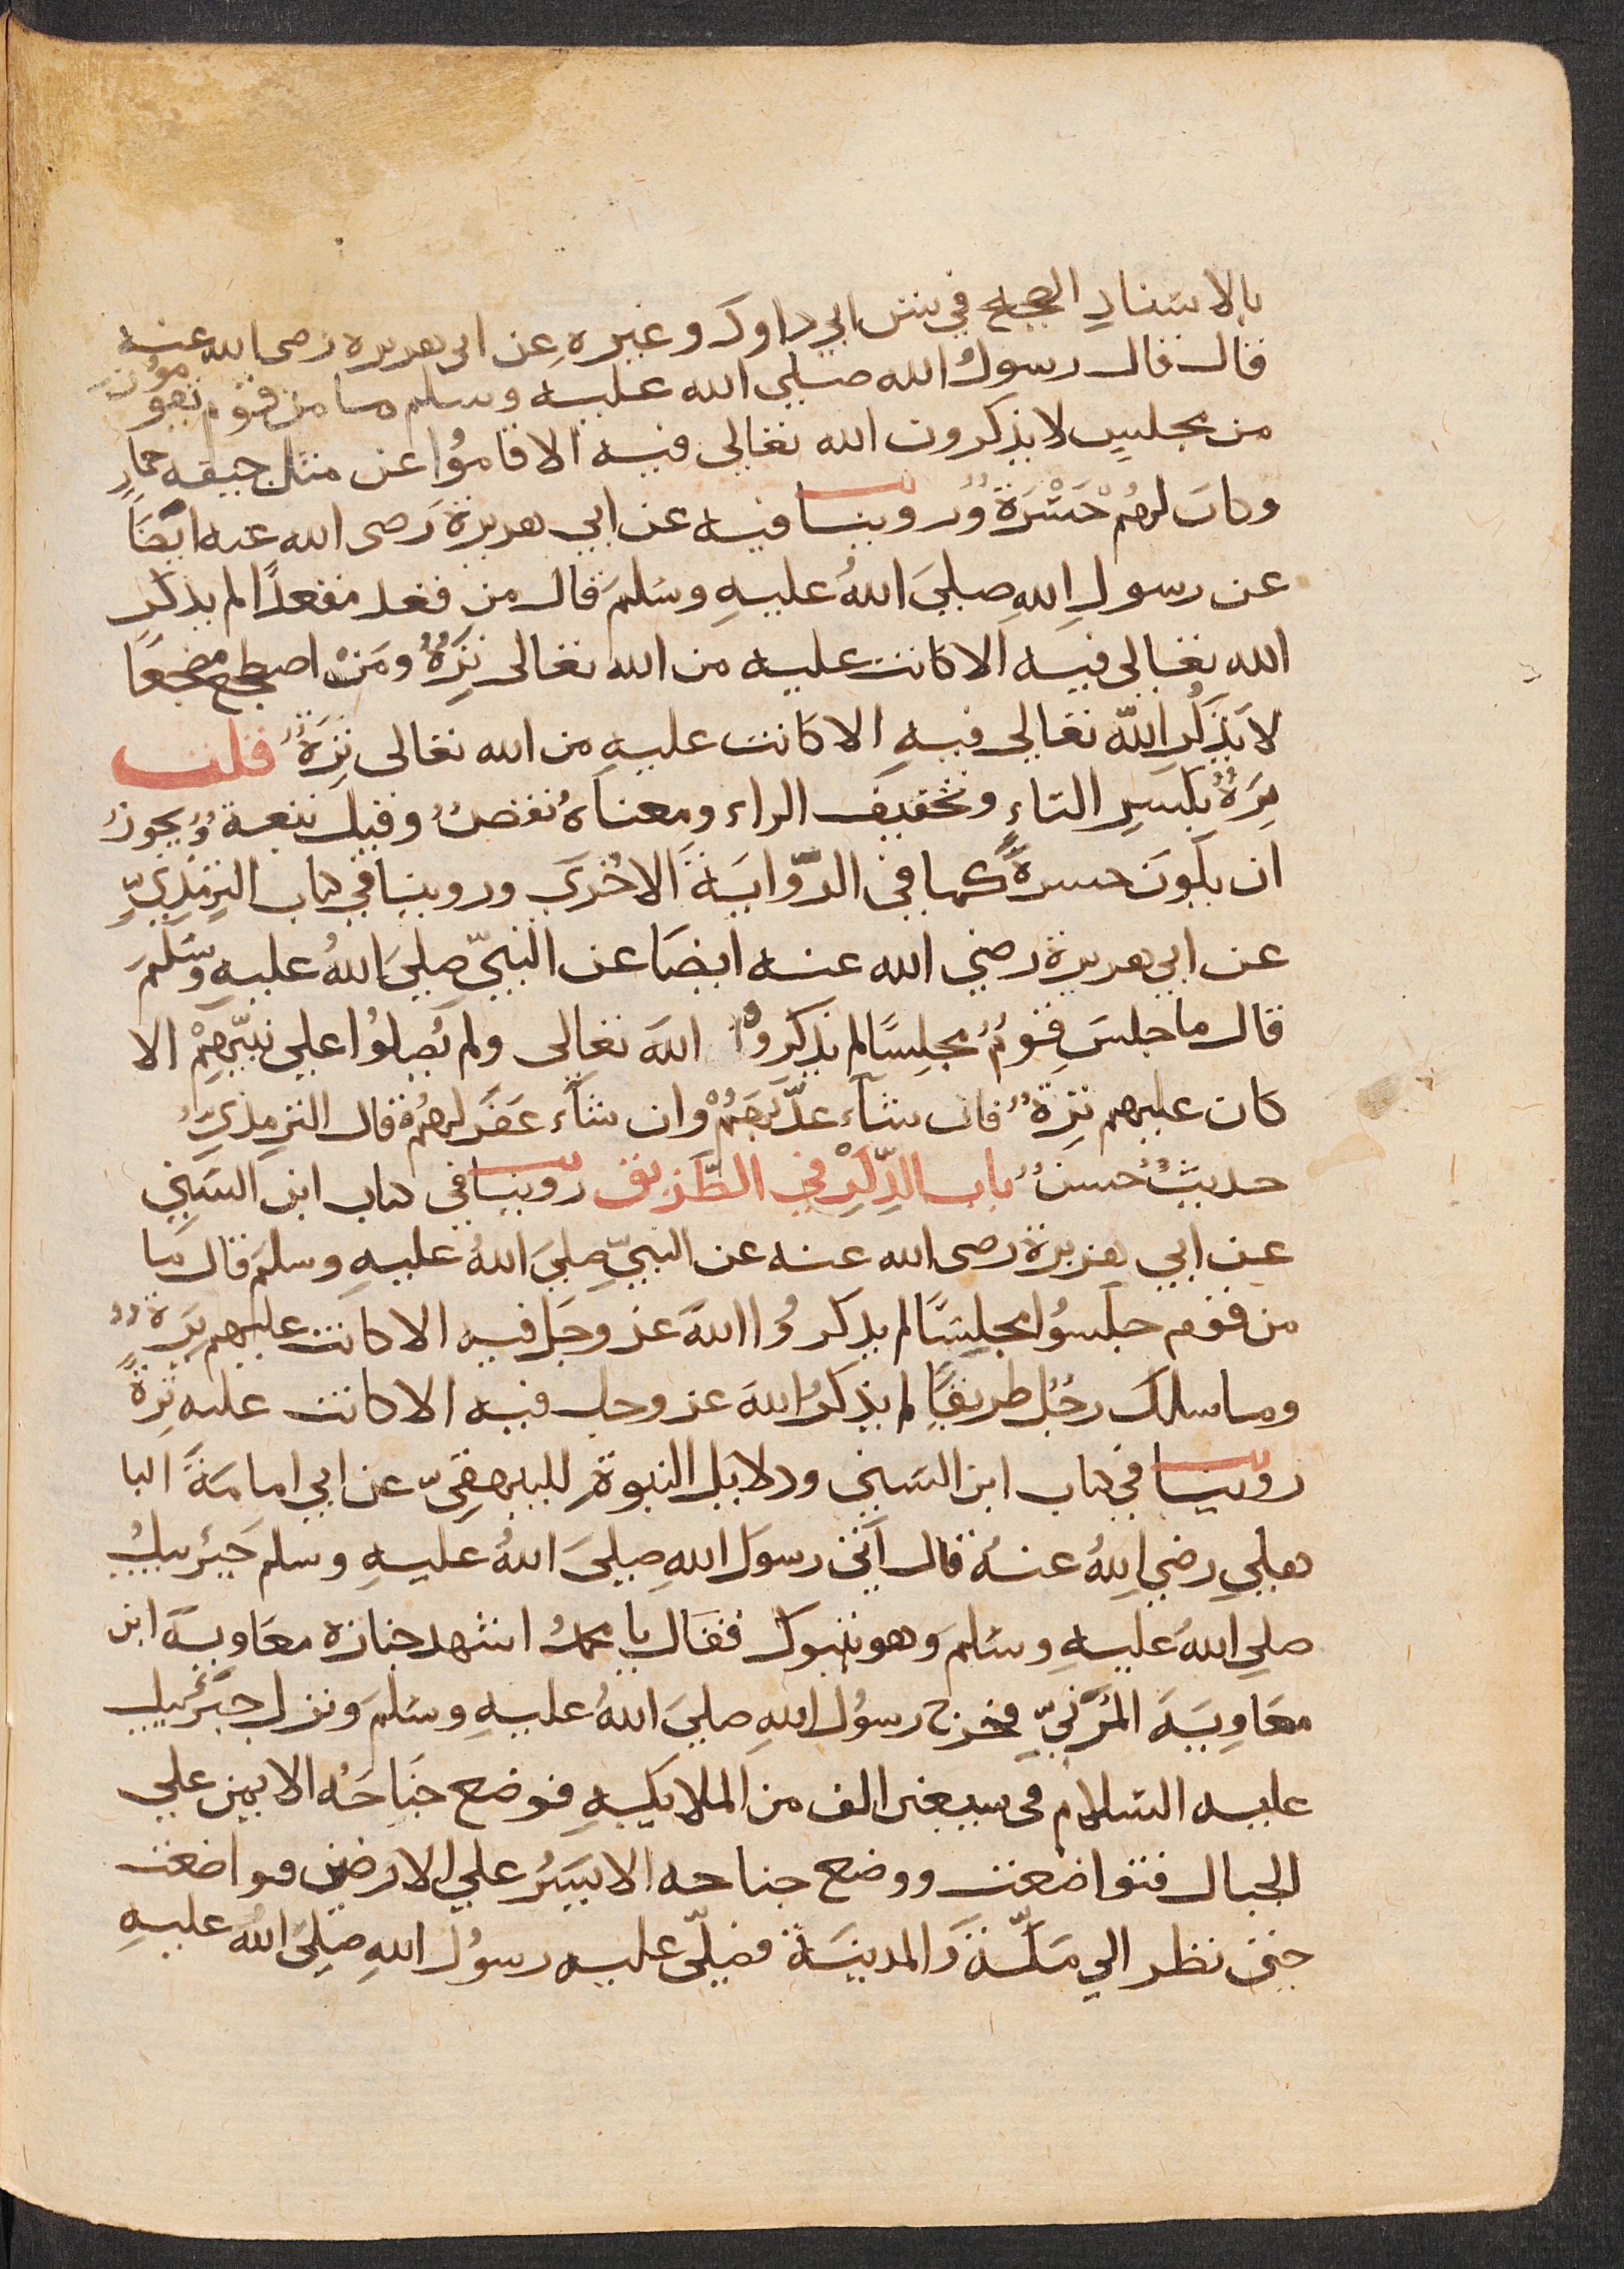 بالاسنادِ الصحيح في سنن ابي داود وغيرهِ عن ابي هريرة رضى الله عنه
قال قال رسولُ الله صلى الله عليه وسلم ما من قوْم يقومُونَ
من مجلسٍ لا يذكرون الله تعالى فيه الا قامُوا عن مثل جيفة حمارٍ
وكان لهُم حَسْرَةٌ وروينا فيه عن ابي هريرة رَضى الله عنه ايضَاً
عن رسولِ اللهِ صلىَ اللهُ عليهِ وسَلمَ قال من قعد مقعدًا لم يذكرِ
الله تعالى فيه الا كانت عليه من الله تعالى تِرَةٌ ومَنْ اضطجع مضجعًا
لا يَذكُرِ اللّه تعالى فيهِ الا كانت عليهِ من الله تعالى تِرَةٌ قلت
تِرَةٌ بكسرِ التاءِ وتخفيف الراء ومعناهُ نقصٌ وقيل تبعةٌ ويجوزُ
ان يكونَ حسرةً كما في الرّوايَةَ الاخرَي وروينا في كتاب الترمذِيّ
عن ابي هريرة رضي الله عنه ايضَا عن النبيّ صلىَ اللهُ عليه وسَلمَ
قال ما جلسَ قومٌ مجلِسًا لم يذكروا اللهَ تعالى ولم يُصلوُا على نبيّهِمْ الا
كان عليهم تِرَةٌ فان شآء عذّبَهَمُْ وان شآء غفَرَ لهُم قال الترمذيّ
حديثٌ حسنٌ باب الذِّكرِْ في الطَّرِيق روينا في كتاب ابن السُني
عن ابي هريرة رضى الله عنه عن النبيّ صلىَ اللهُ عليهِ وسلمَ قال ما
من قوم جلَسوُا مجلِسًا لم يذكرُوا اللهَ عز وجَل فيه الا كانت عليهم تِرَةٌ
وما سلك رجُل طريقًا لم يذكرُ اللهَ عز وجل فيه الا كانت عليه تِرَةً
روينا في كتاب ابن السَني ودلايل النبوةِ للبيهقِيّ عن ابي امامَةَ البا
هلي رضي اللهُ عنهُ قال اَتي رسوَل اللهِ صلىَ اللهُ عليهِ وسلم جَبْرئيلُ
صلى اللهُ عليهِ وسَلمَ وهو بتبوك فقال يا محمدُ اشهد جنازة معَاويَة ابن
معَاوِيَةَ المُزَنيّ فخرج رسوُل اللهِ صلىَ اللهُ عليهِ وسَلمَ ونزل جبَرْئيل
عليه السَلام في سبعين الف من الملايكةِ فوضع جناحَهُ الايمن علي
الجبال فتواضعت ووضع جناحه الايسَرُ علي الارضين فتواضعت
حتي نظر الي مَكّةَ وَالمدينَة فصَلّى عليه رسوُل اللهِ صلىَ اللهُ عليهِ